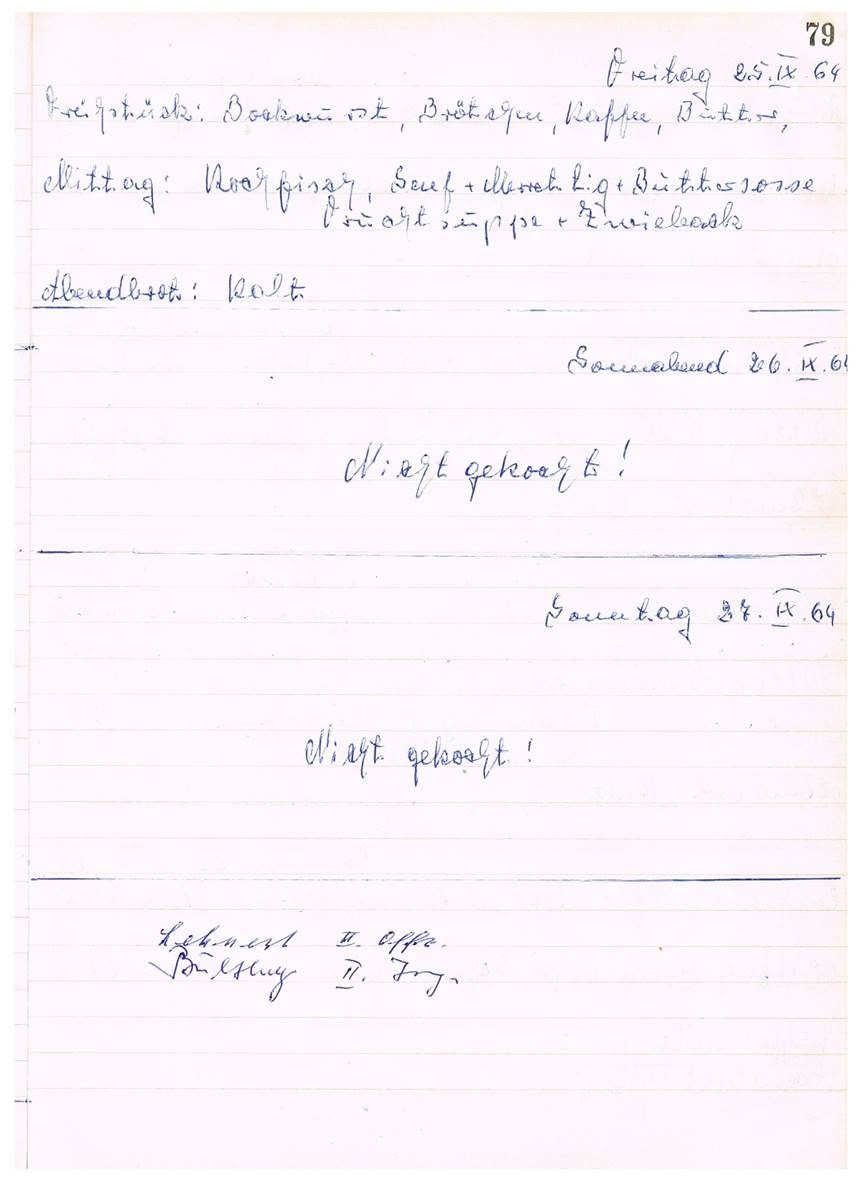 79
Freitag 25. IX. 64
Frühstück: Bockwurst, Brötchen, Kaffee, Butter,
Mittag: Kochfisch, Senf + Meerrettig + Buttersosse
Fruchtsuppe + Zwieback
Abendbrot: Kalt
Sonnabend 26. IX. 64
Nicht gekocht!
Sonntag 27. IX. 64
Nicht gekocht!
Lehnert II. Offz.
II. Ing.